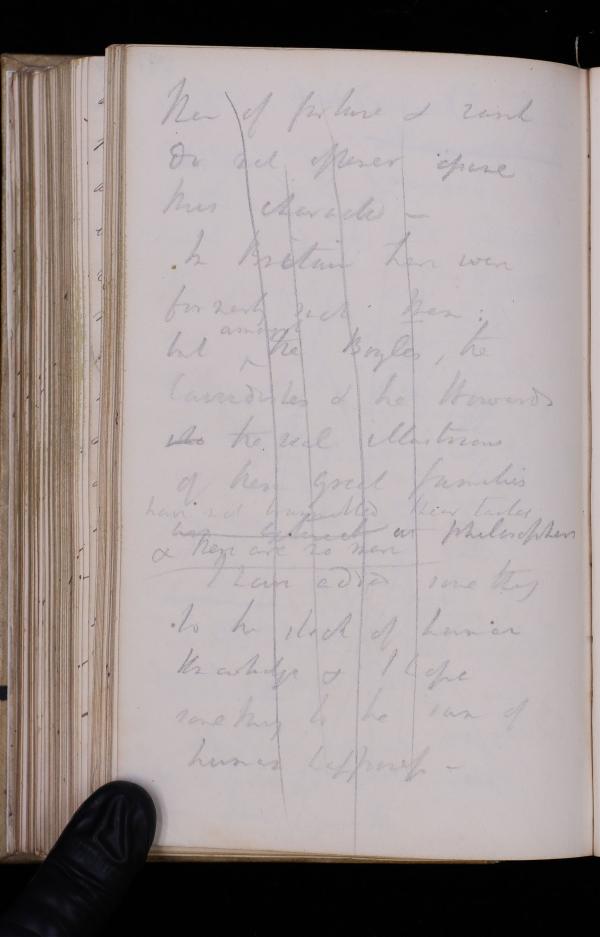 Men of fortune & rank
do not often
this character –
In Britain there were
formerly such Men:
but amongst the Boyles, the
Cavendishes & the Howards
the real illustrious
of these great families
have not transmitted their
as philosophers
& there are no more
I have added some thing
to the stock of human
Knowledge & I hope
something to the sum of
human happiness –